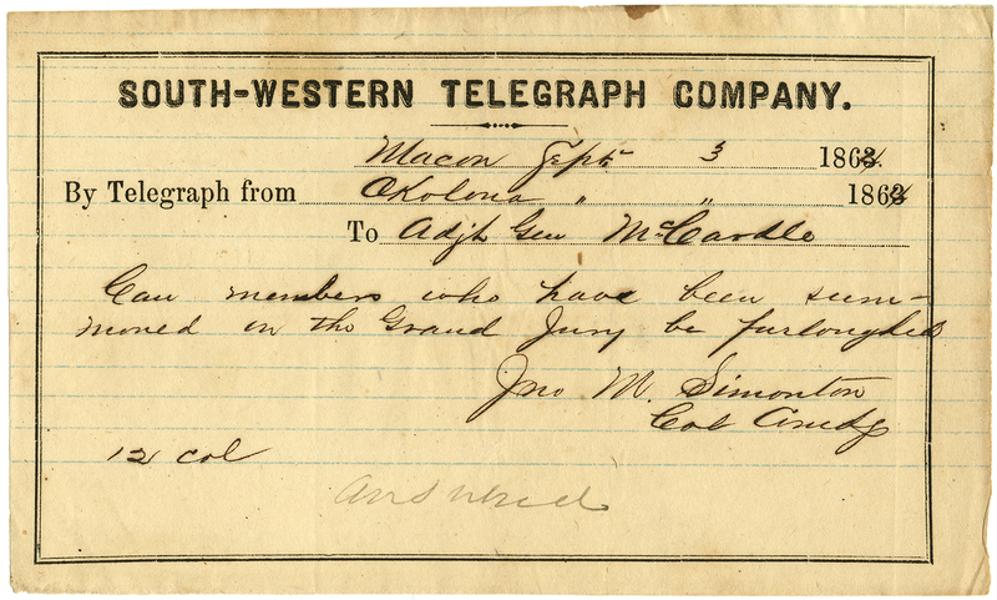 SOUTH-WESTERN TELEGRAPH COMPANY.
Macon Sept 3 1864.
By Telegraph from Okolona " " 1864
To Adjt Gen McCardle
Can members who have been sum-
moned on the Grand Jury be furloughed
Jno M. Simonton
Col Comdg
12 col
answered